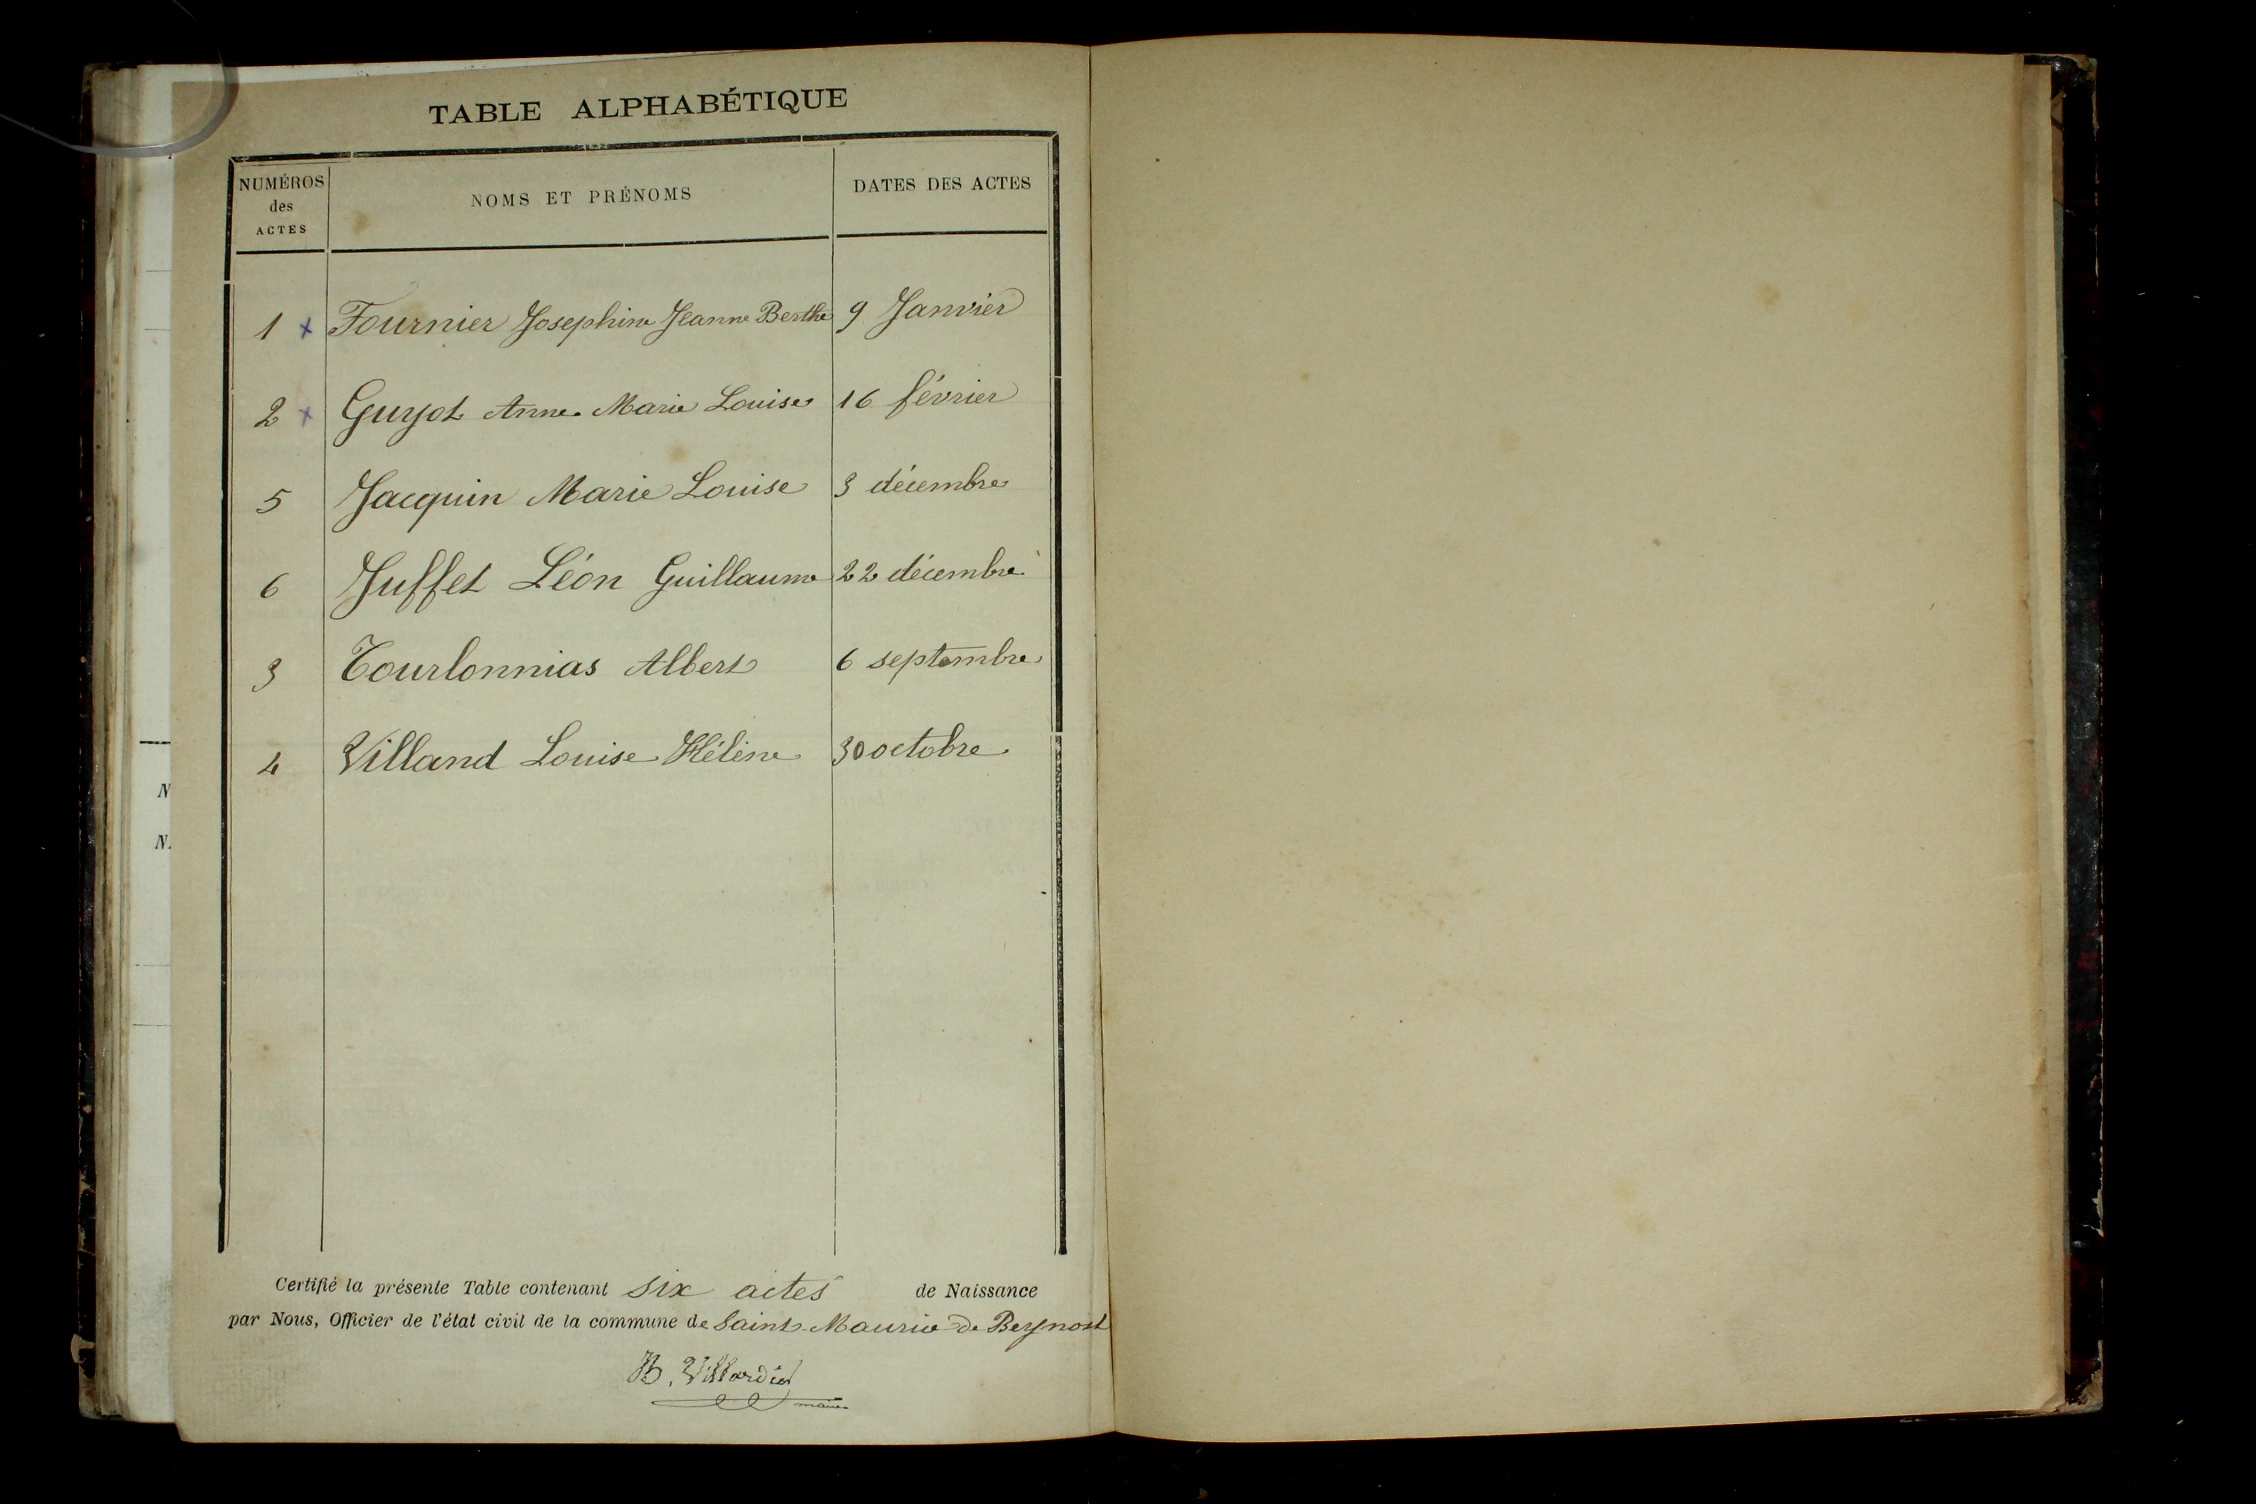 TABLE ALPHABÉTIQUE
NUMÉROS
des
ACTES
NOMS ET PRÉNOMS
DATES DES ACTES
1 x Fournier Josephine Jeanne Berthe 9 Janvier
2 x Guyot Anne Marie Louise 16 février
5 Jacquin Marie Louise 3 décembre
6 Juffet Léon Guillaume 22 décembre
3 Tourlonnias Albert 6 septembre
4 Villand Louise Hélène 30 octobre
N
N.
Certifié la présente Table contenant six actes de Naissance
par Nous, Officier de l'état civil de la commune de Saint Maurice de Beynost
Villardier
maire